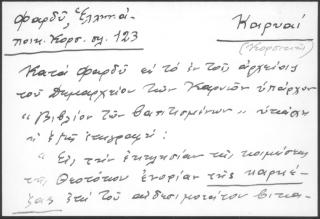 Φαρδύ, Ἑλλην. ἀ-
ποικ. Κορσ. σελ. 123
Καρυαί
(Κορσικῆς)
Κατὰ Φαρδὺ εἰς τὸ ἐν τοῖς ἀρχείοις
τοῦ Δημαρχείου τῶν Καρυῶν ὑπάρχον
"Βιβλίον τῶν βαπτισμένων" ὑπάρχει
ἡ ἑξῆς ἐπιγραφή:
"Εἰς τὴν ἐκκλησίαν τῆς κοιμήσεως
τῆς Θεοτόκου ἐνορίαν τῆς καργέ-
ζας ἐπὶ τοῦ αἰδεσιμοτάτου βικα-